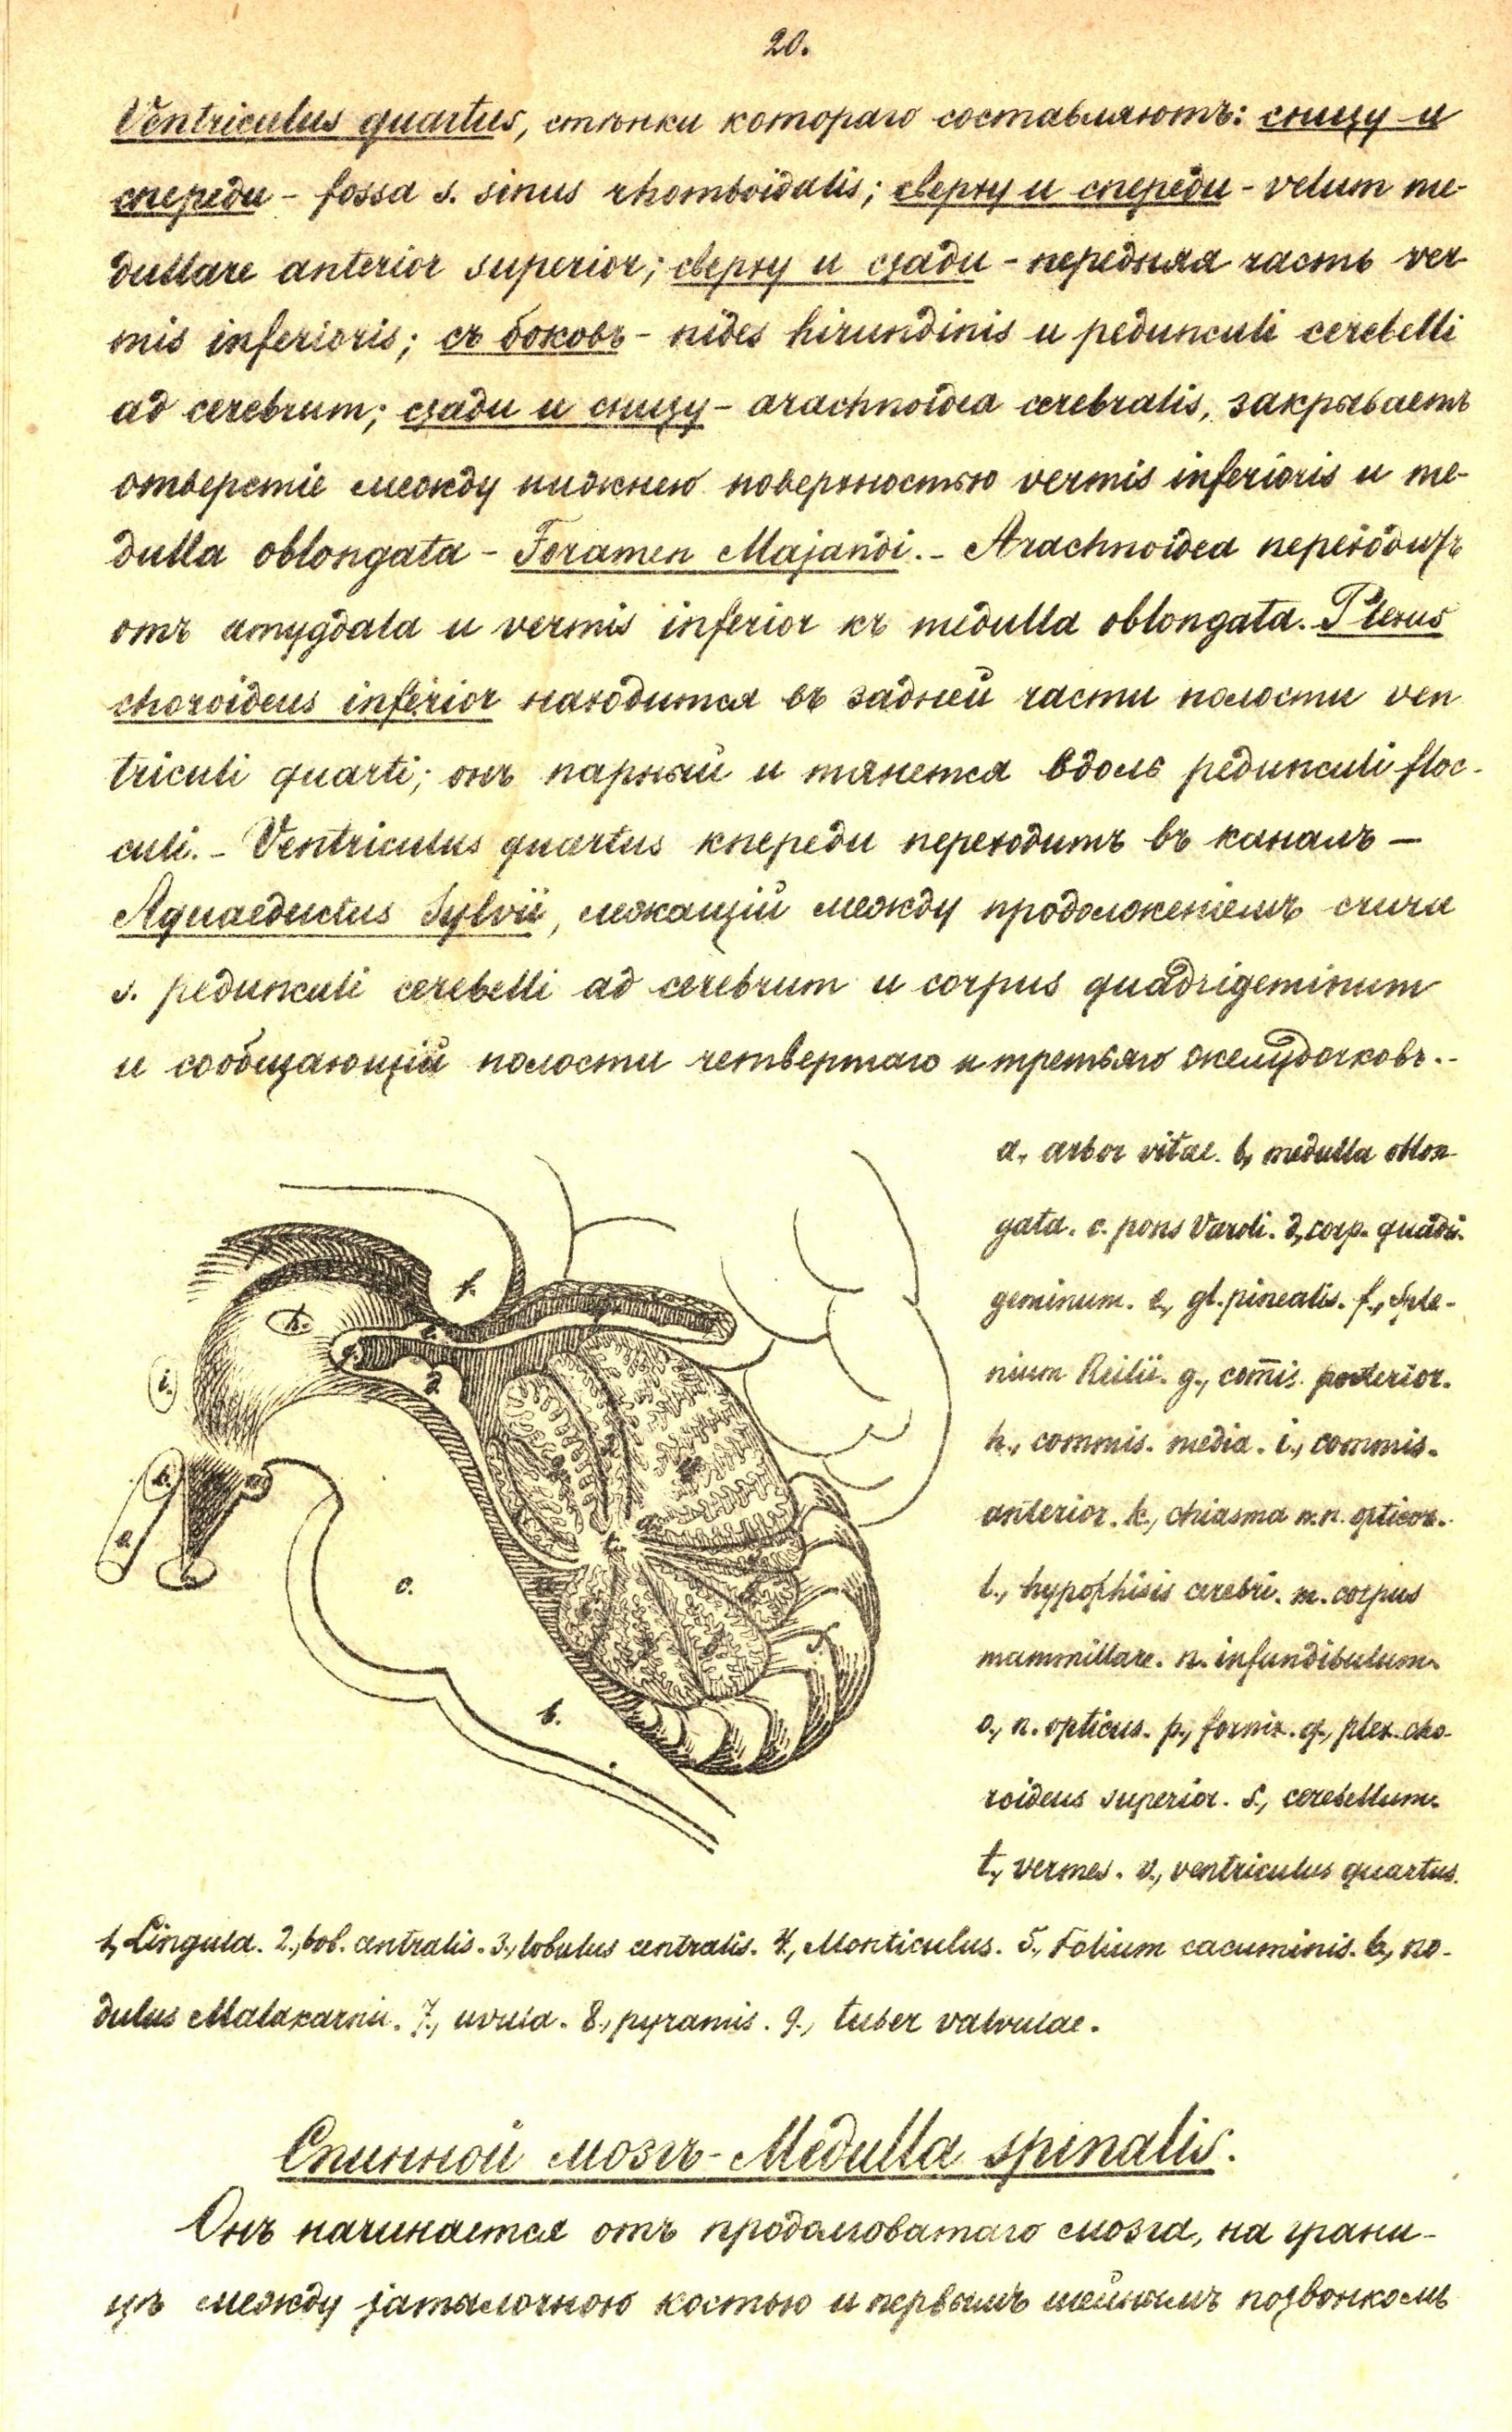 20.
Ventriculus quartus, стѣнки котораго составляютъ: снизу и
спереди - fossa s. sinus rhomboidalis; сверху и спереди - velum me-
dullare anterior superior; сверху и сзади - передняя часть ver-
mis inferioris; съ боковъ - nides hirundinis и pedunculi cerebelli
ad cerebrum; сзади и снизу - arachnoidea cerebralis, закрываетъ
отверстіе между нижнею поверхностью vermis inferioris и me-
dulla oblongata - Foramen Majandi. - Arachnoidea переходитъ
отъ amygdala и vermis inferior къ medulla oblongata. Plexus
choroideus inferior находится въ задней части полости ven
triculi quarti; онъ парный и тянется вдоль pedunculi floc-
culi. - Ventriculus quartus кпереди переходитъ въ каналъ —
Aquaeductus Sylvii, лежащій между продолженіемъ crura
s. pedunculi cerebelli ad cerebrum и corpus quadrigeminum
и сообщающій полости четвертаго и третьяго желудочковъ. -
a, arbor vitae. b, medulla oblon-
gata. c. pons Varoli. d, corp. quadri-
geminum. e, gl. pinealis. f., Sple-
nium Reilii. g., com̅is. posterior.
h., commis. media. i., commis.
anterior. k., chiasma n.n. opticor.
l., hypophisis cerebri. m. corpus
mammillare. n. infundibulum.
o., n. opticus. p., fornix. q., plex. cho-
roideus superior. s., cerebellum.
t., vermes. v., ventriculus quartus.
f.
h.
e.
g.
d.
i.
k.
m
a.
t.
c.
s
b.
1, Lingula. 2., lob. centralis. 3., lobulus centralis. 4., Monticulus. 5., Folium cacuminis. 6., no-
dulus Malakarnii. 7., uvula. 8., pyramis. 9., tuber valvulae.
Спинной мозгъ - Medulla spinalis.
Онъ начинается отъ продолговатаго мозга, на грани-
цѣ между затылочною костью и первымъ шейнымъ позвонкомъ